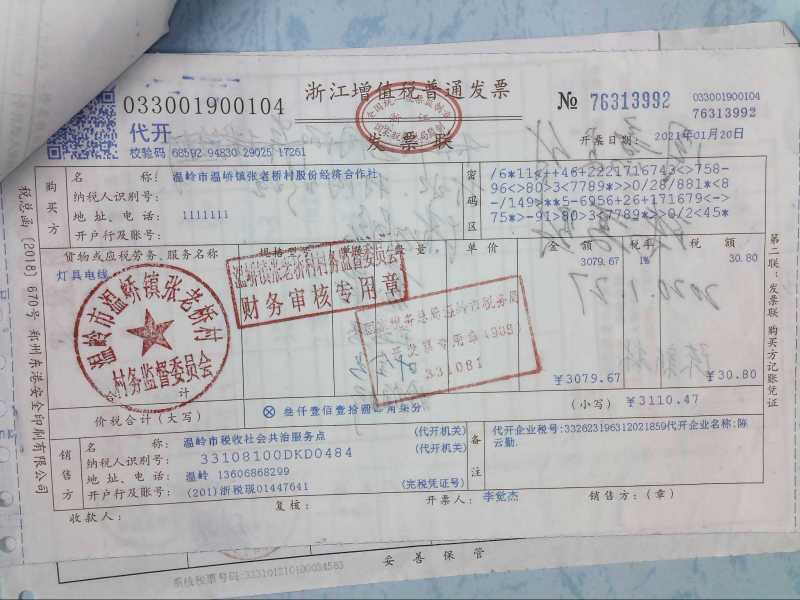 浙江增值税普通发票
033001900104
№ 76313992
033001900104
76313992
代开
发票联
校验码 68592 94830 29025 17261
开票日期：2021年01月20日
购买方
名 称：温岭市温峤镇张老桥村股份经济合作社
纳税人识别号：
地 址、电 话：1111111
开户行及账号：
密码区
/6*11<++46+2221716743<>758-
96<>80>3<7789*>>0/28/881*<8
-/149>**5-6956+26+171679<->
75*>-91>80>3<7789*>>0/2<45*
货物或应税劳务、服务名称 规格型号 单 价 金 额 税率 税 额
灯具电线 3079.67 1% 30.80
温岭市温峤镇张老桥村
村务监督委员会
温峤镇张老桥村村务监督委员会
财务审核专用章
331081
2020.1.27
¥3079.67 ¥30.80
价税合计（大写） ⊗ 叁仟壹佰壹拾圆肆角柒分 （小写）¥3110.47
销售方
名 称：温岭市税收社会共治服务点 （代开机关）
纳税人识别号：33108100DKD0484 （代开机关）
地 址、电 话：温岭 13606868299
开户行及账号：(201)浙税现01447641 （完税凭证号）
备注
代开企业税号:332623196312021859代开企业名称:陈
云勤
收款人：
复核：
开票人：李觉杰
销售方：（章）
税总函〔2018〕670号 郑州东港安全印刷有限公司
第二联：发票联 购买方记账凭证
妥善保管
系统税票号码:333101210100034583